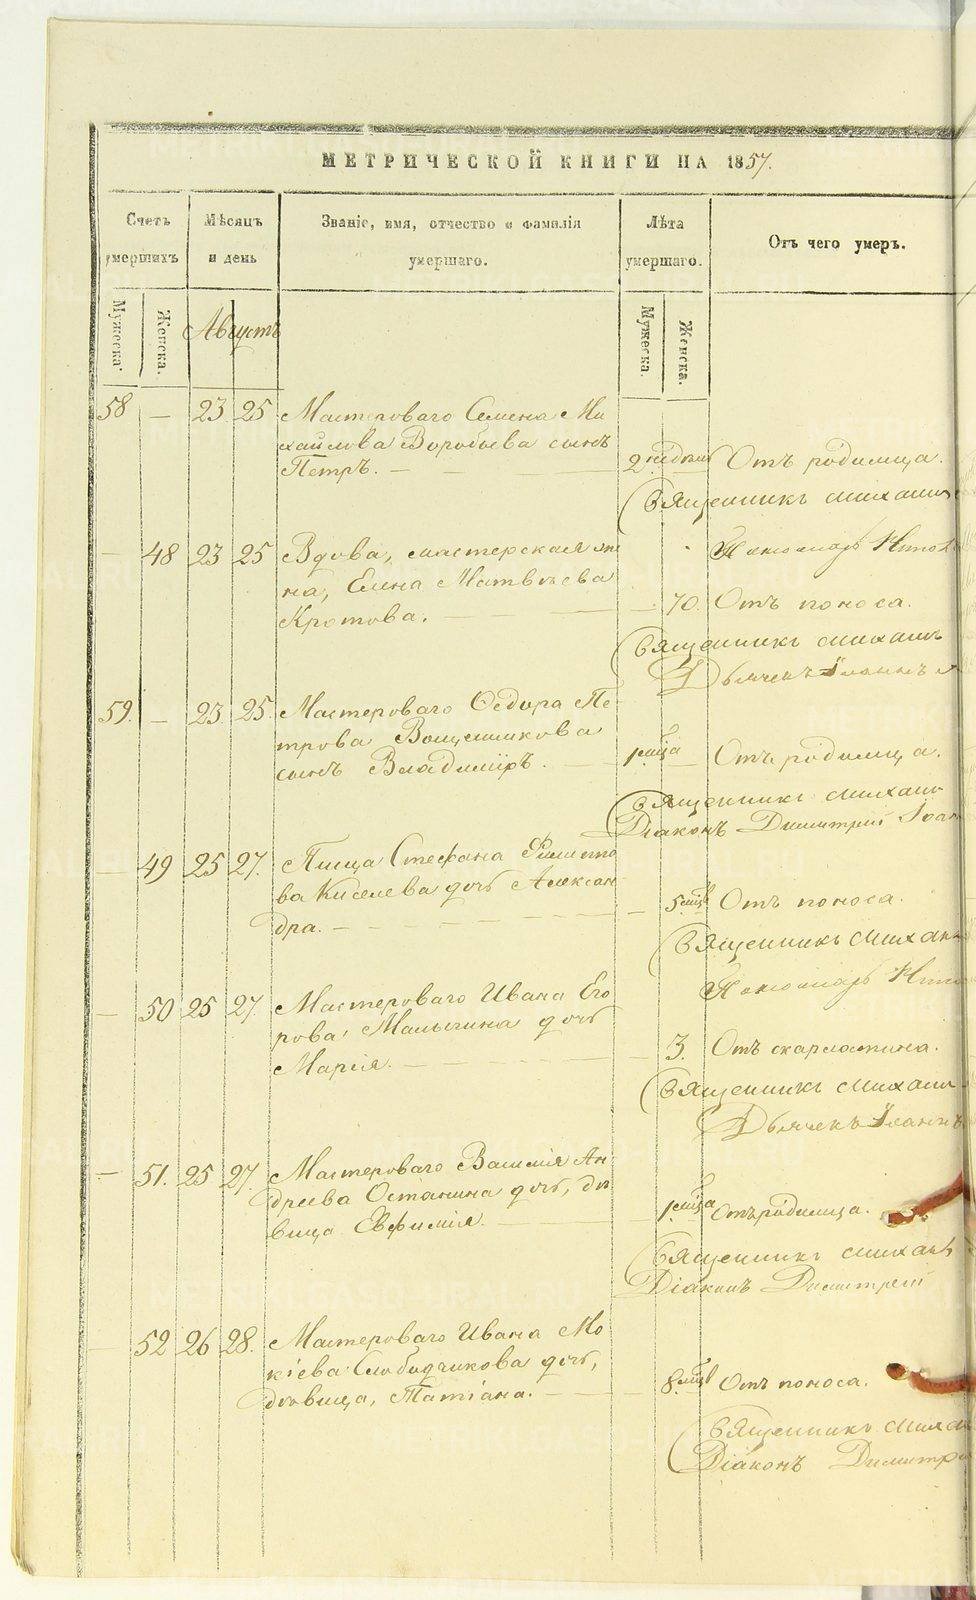 МЕТРИЧЕСКОЙ КНИГИ НА 1857.
Счетъ умершихъ
Мѣсяцъ и день
Званіе, имя, отчество и фамилія умершаго.
Лѣта умершаго.
Отъ чего умеръ.
Мужеска. Женска. Августъ Мужеска. Женска.
58 — 23 25 Мастероваго Семена Ми
хайлова Воробьева сынъ
Петръ. — 2 недѣли Отъ родимца.
Священникъ Михаилъ
— 48 23 25 Вдова, мастерская же Пономарь
на, Елена Матвѣева
Кротова. — 70. Отъ поноса.
Священникъ Михаилъ
Дьячекъ Іоаннъ
59. — 23 25. Мастероваго Ѳедора Пе
трова Ващенникова
сынъ Владиміръ. 1 мѣсяца Отъ родимца.
Священникъ Михаилъ
Діаконъ Димитрій Іоан
— 49 25 27. Писца Стефана Филиппо
ва Киселева дочь Алексан
дра. — 5 мѣсяцевъ Отъ поноса.
Священникъ Михаилъ
Пономарь
— 50 25 27. Мастероваго Ивана Его
рова Малыгина дочь
Марія. — 3. Отъ скарлатина.
Священникъ Михаилъ
Дьячекъ Іоаннъ
— 51. 25 27. Мастероваго Василія Ан
дреева Останина дочь, дѣ
вица Евфимія. — 1 мѣсяца Отъ родимца.
Священникъ Михаилъ
Діаконъ Димитрій
— 52 26 28. Мастероваго Ивана Мо
кіева Слободчикова дочь,
дѣвица, Татіана. — 8 мѣсяцевъ Отъ поноса.
Священникъ Михаилъ
Діаконъ Димитрій